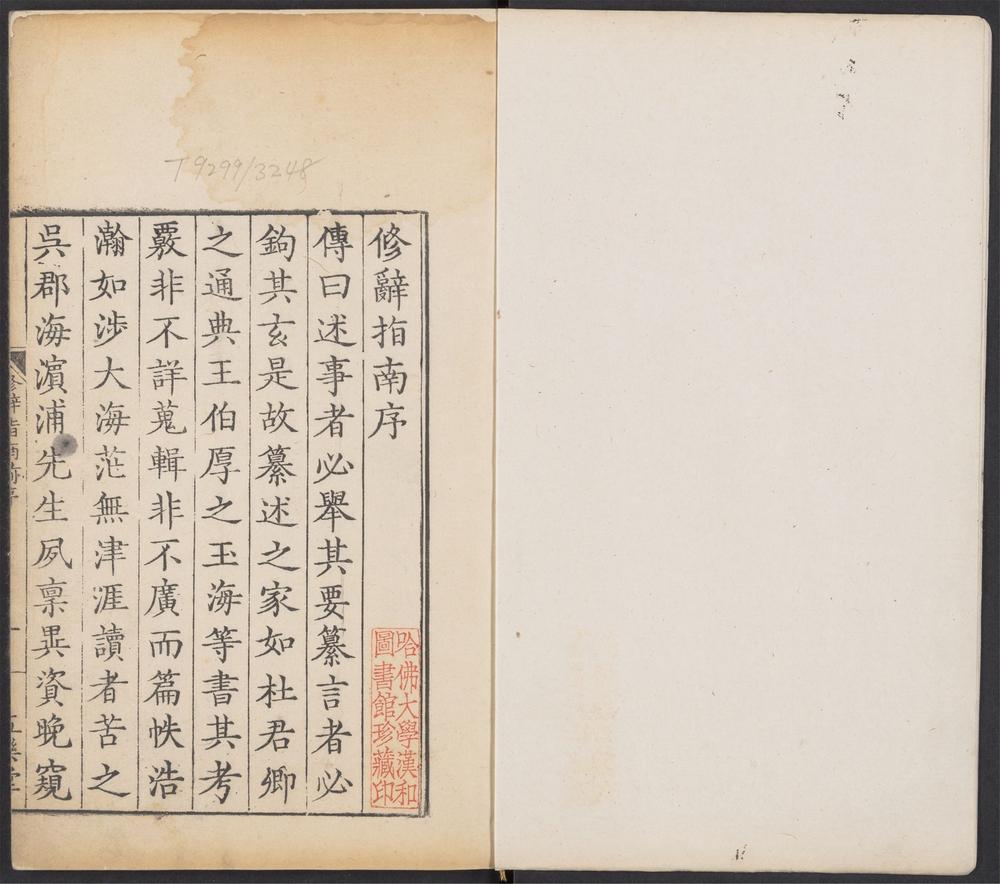 T9299/3248
修辭指南序
傳曰述事者必舉其要纂言者必
鉤其玄是故纂述之家如杜君卿
之通典王伯厚之玉海等書其考
覈非不詳蒐輯非不廣而篇帙浩
瀚如涉大海茫無津涯讀者苦之
吳郡海濵浦先生夙稟異資晚窺
修辭指南序
一
哈佛大學漢和
圖書館珍藏印